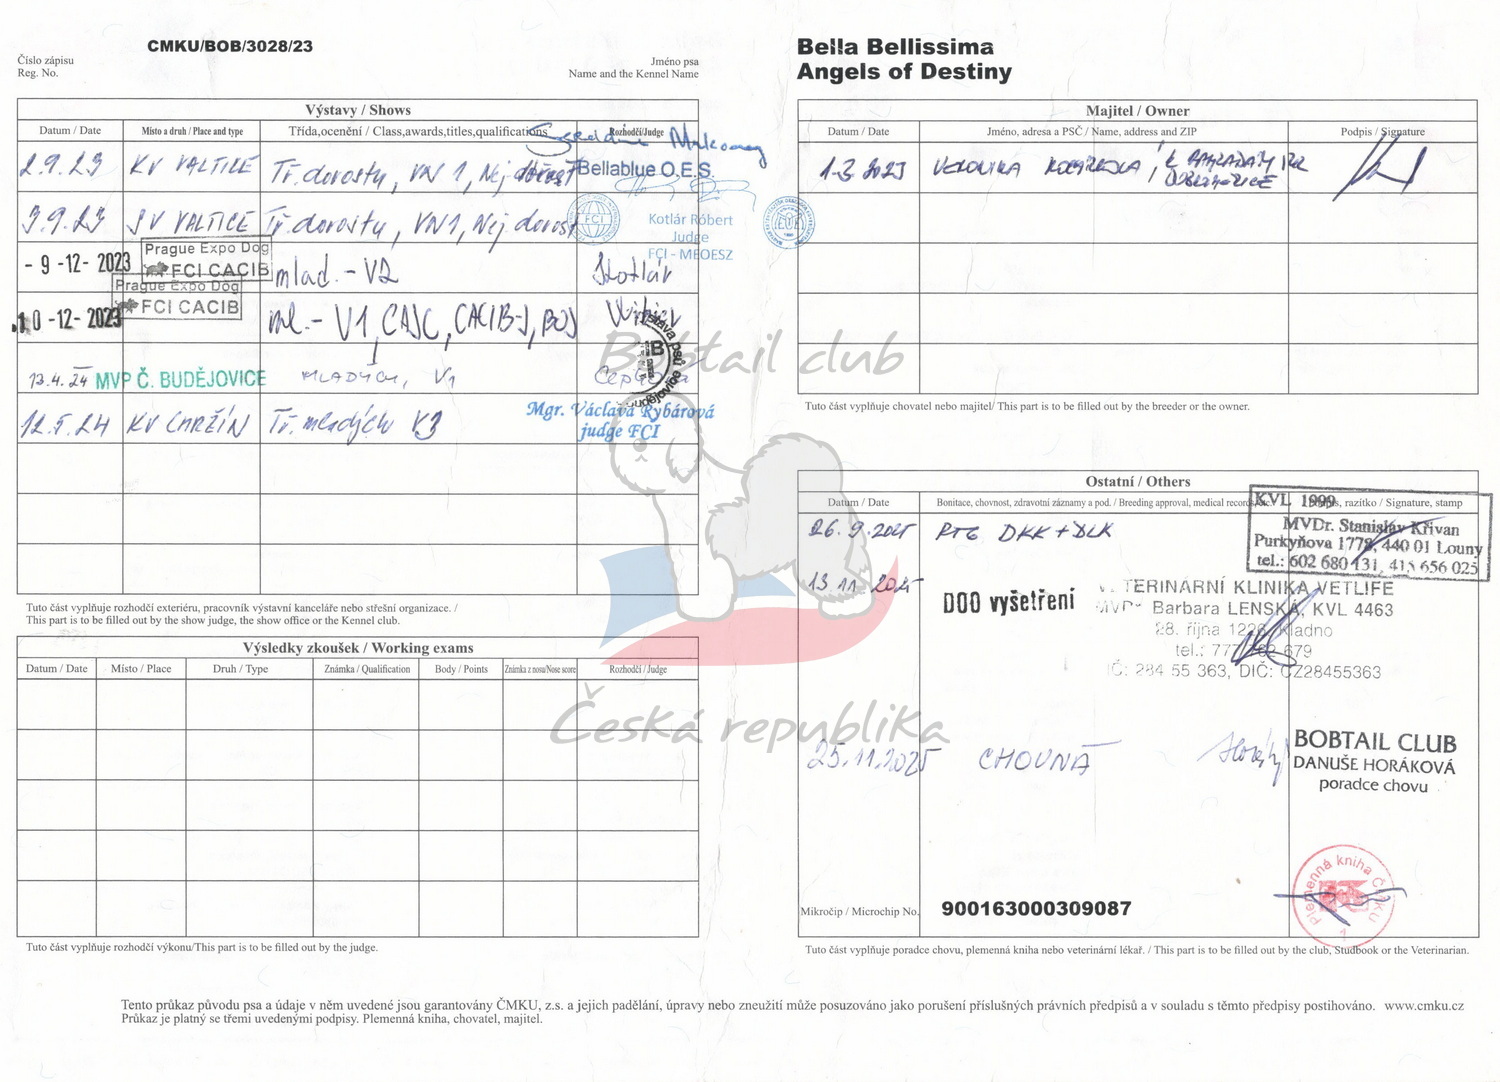 CMKU/BOB/3028/23
Číslo zápisu
Reg. No.
Jméno psa
Name and the Kennel Name
Bella Bellissima
Angels of Destiny
Výstavy / Shows
Datum / Date Místo a druh / Place and type Třída,ocenění / Class,awards,titles,qualifications Rozhodčí/Judge
2.9.23 KV VALTICE Tř. dorostu, VN 1, Nej dorost
Bellablue O.E.S.
3.9.23 SV VALTICE Tř. dorostu, VN1, Nej dorost
FCI
Kotlár Róbert
Judge
FCI - MEOESZ
- 9 -12- 2023 Prague Expo Dog
FCI CACIB
mlad. - V2 Kotlár
10 -12- 2023 Prague Expo Dog
FCI CACIB
ml. - V1, CAJC, CACIB-J, BOJ
13.4.24 MVP Č. BUDĚJOVICE MLADÝCH, V1
12.5.24 KV CHRŽÍN Tř. mladých V3
Mgr. Václava Rybárová
judge FCI
Tuto část vyplňuje rozhodčí exteriéru, pracovník výstavní kanceláře nebo střešní organizace. /
This part is to be filled out by the show judge, the show office or the Kennel club.
Výsledky zkoušek / Working exams
Datum / Date Místo / Place Druh / Type Známka / Qualification Body / Points Známka z nosu/Nose score Rozhodčí / Judge
Tuto část vyplňuje rozhodčí výkonu/This part is to be filled out by the judge.
Majitel / Owner
Datum / Date Jméno, adresa a PSČ / Name, address and ZIP Podpis / Signature
1.3 2023 VERONIKA
Tuto část vyplňuje chovatel nebo majitel/ This part is to be filled out by the breeder or the owner.
Bobtail club
Česká republika
Ostatní / Others
Datum / Date Bonitace, chovnost, zdravotní záznamy a pod. / Breeding approval, medical records, razítko / Signature, stamp
26.9.2025 RTG DKK + DLK
KVL 1999
MVDr. Stanislav Křivan
Purkyňova 1778, 440 01 Louny
tel.: 602 680 131, 415 656 025
13.11 2025 DOO vyšetření
VETERINÁRNÍ KLINIKA VETLIFE
MVDr. Barbara LENSKÁ, KVL 4463
28. října 1226, Kladno
679
IČ: 284 55 363, DIČ: CZ28455363
25.11.2025 CHOVNÁ
BOBTAIL CLUB
DANUŠE HORÁKOVÁ
poradce chovu
Plemenná kniha ČMKU
1
Mikročip / Microchip No. 900163000309087
Tuto část vyplňuje poradce chovu, plemenná kniha nebo veterinární lékař. / This part is to be filled out by the club, Studbook or the Veterinarian.
Tento průkaz původu psa a údaje v něm uvedené jsou garantovány ČMKU, z.s. a jejich padělání, úpravy nebo zneužití může posuzováno jako porušení příslušných právních předpisů a v souladu s těmto předpisy postihováno. www.cmku.cz
Průkaz je platný se třemi uvedenými podpisy. Plemenná kniha, chovatel, majitel.